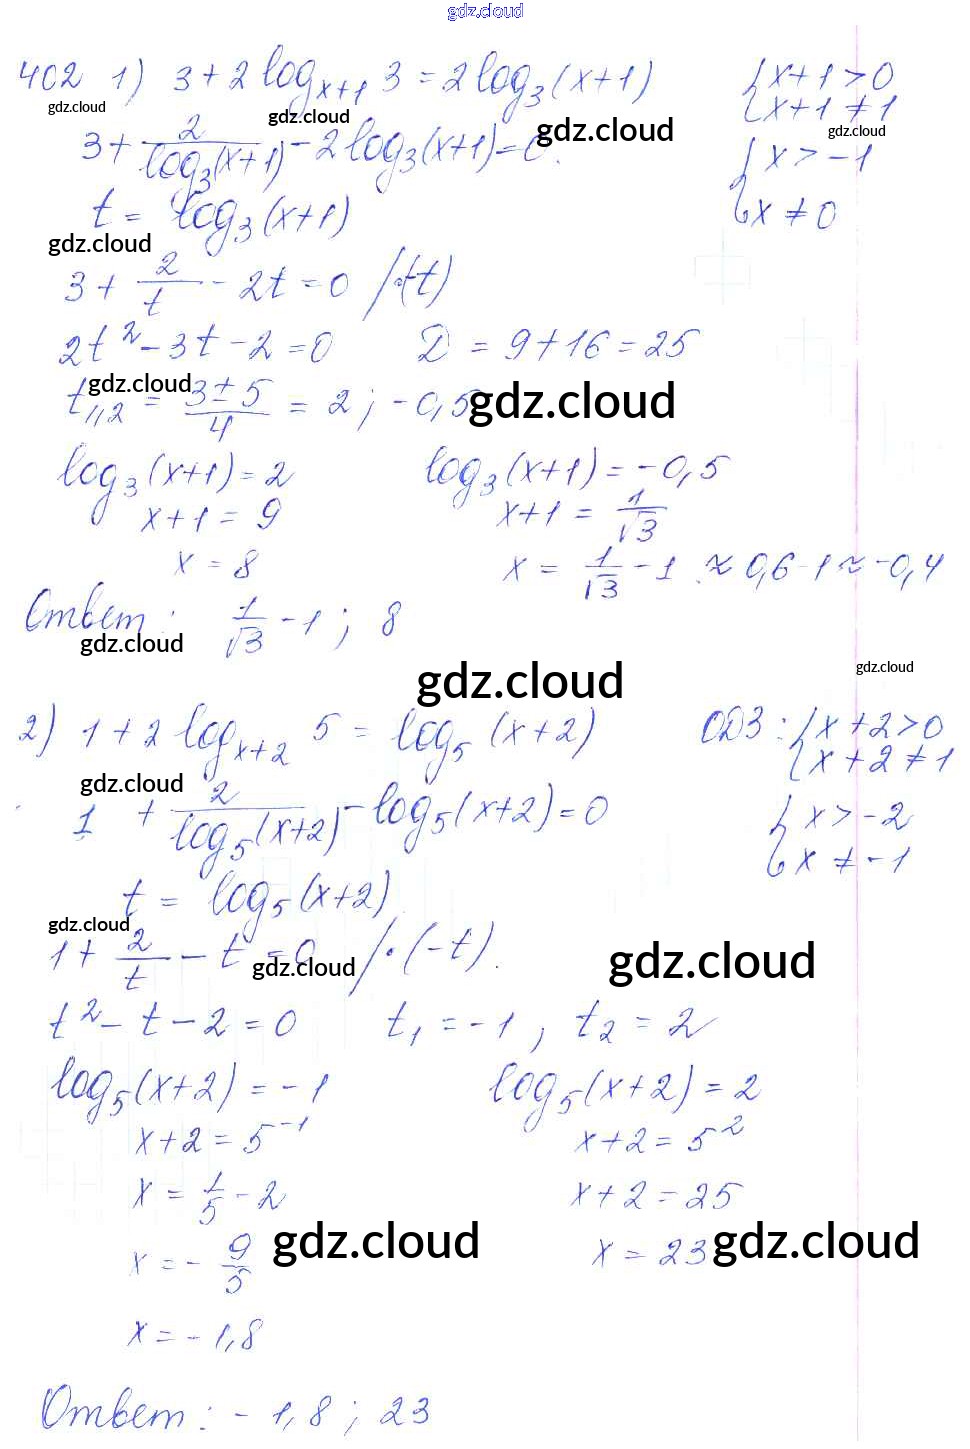 gdz.cloud
402 1) 3 + 2 log_{x+1} 3 = 2 log_3 (x+1) { x+1 > 0
gdz.cloud gdz.cloud gdz.cloud { x+1 ≠ 1 gdz.cloud
3 + 2/(log_3 (x+1)) - 2 log_3 (x+1) = 0. { x > -1
t = log_3 (x+1) { x ≠ 0
gdz.cloud
3 + 2/t - 2t = 0 /·(-t)
2t² - 3t - 2 = 0 D = 9 + 16 = 25
gdz.cloud
t_{1,2} = (3 ± 5)/4 = 2; -0,5 gdz.cloud
log_3 (x+1) = 2 log_3 (x+1) = -0,5
x+1 = 9 x+1 = 1/√3
x = 8 x = 1/√3 - 1 ≈ 0,6 - 1 ≈ -0,4
Ответ: 1/√3 - 1; 8
gdz.cloud
gdz.cloud gdz.cloud
2) 1 + 2 log_{x+2} 5 = log_5 (x+2) ОДЗ: { x+2 > 0
{ x+2 ≠ 1
gdz.cloud
1 + 2/(log_5 (x+2)) - log_5 (x+2) = 0 { x > -2
{ x ≠ -1
t = log_5 (x+2)
gdz.cloud
1 + 2/t - t = 0 /·(-t).
gdz.cloud gdz.cloud
t² - t - 2 = 0 t_1 = -1; t_2 = 2
log_5 (x+2) = -1 log_5 (x+2) = 2
x+2 = 5^{-1} x+2 = 5²
x = 1/5 - 2 x+2 = 25
x = - 9/5 gdz.cloud x = 23 gdz.cloud
x = -1,8
Ответ: -1,8; 23